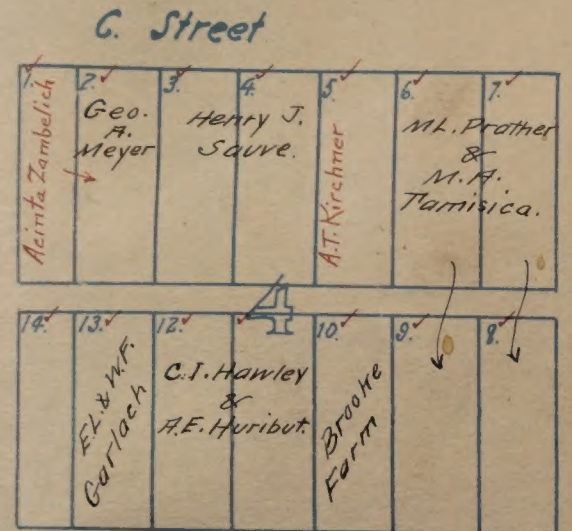 C. Street
1.
Acinta Zambelich
2.
Geo.
A.
Meyer
3.
4.
Henry J.
Sauve.
5.
A.T. Kirchner
6.
7.
M.L. Prather
&
M.A.
Tamisica.
4
14.
13.
E.L. & W.F.
Garlach
12.
C.I. Hawley
&
A.E. Huribut.
10.
Brooke
Farm
9.
8.